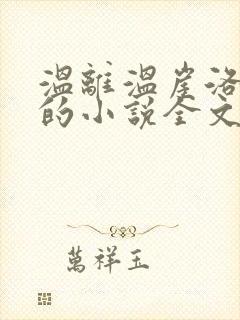 溫離溫崖洛
的小說全文
萬祥玉